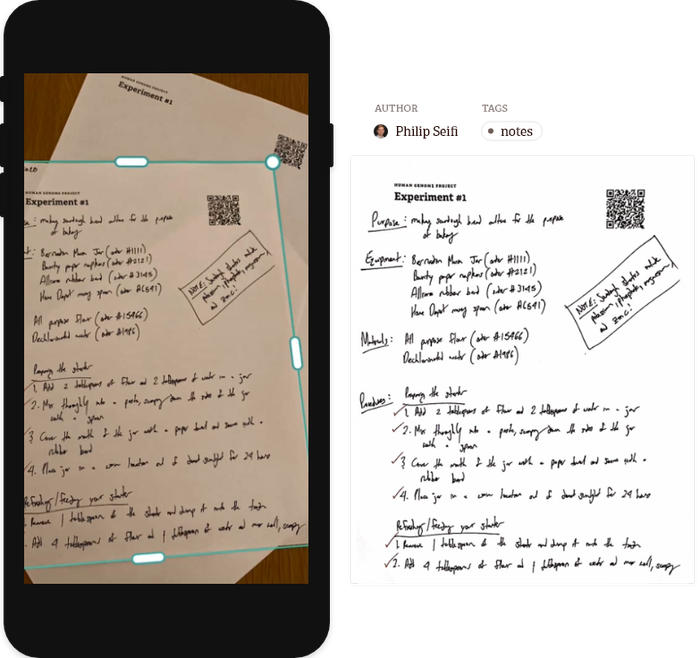 HUMAN GENOME PROJECT
Experiment #1
HUMAN GENOME PROJECT
Experiment #1
making sourdough bread culture for the purpose
of baking
Bernardin Mason Jar (order #1111)
Bounty paper napkins (order #2121)
rubber band (order #3145)
Home Depot mixing spoon (order AC541)
All purpose flour (order #15466)
Dechlorinated water (order #1496)
Preparing the starter
1. Add 2 tablespoons of flour and 2 tablespoons of water in a jar
2. Mix throughly into a paste, scraping down the sides of the jar
with a spoon
3 Cover the mouth of the jar with a paper towel and secure with a
rubber band
4. Place jar in a warm location out of direct sunlight for 24 hours
Refreshing/feeding your starter
Remove 1 tablespoon of the starter and dump it into the
. Add 4 tablespoons of flour and 1 tablespoon of water and mix well, scraping
NOTE: Sourdough starters include
potassium, phosphates, magnesium
and zinc!
AUTHOR
Philip Seifi
TAGS
notes
HUMAN GENOME PROJECT
Experiment #1
Purpose: making sourdough bread culture for the purpose
of baking
Equipment: Bernardin Mason Jar (order #1111)
Bounty paper napkins (order #2121)
rubber band (order #3145)
Home Depot mixing spoon (order AC541)
NOTE: Sourdough starters include
potassium, phosphates, magnesium
and zinc!
Materials: All purpose flour (order #15466)
Dechlorinated water (order #1496)
Procedures: Preparing the starter
1. Add 2 tablespoons of flour and 2 tablespoons of water in a jar
2. Mix throughly into a paste, scraping down the sides of the jar
with a spoon
3 Cover the mouth of the jar with a paper towel and secure with a
rubber band
4. Place jar in a warm location out of direct sunlight for 24 hours
Refreshing/feeding your starter
1. Remove 1 tablespoon of the starter and dump it into the
2. Add 4 tablespoons of flour and 1 tablespoon of water and mix well, scraping